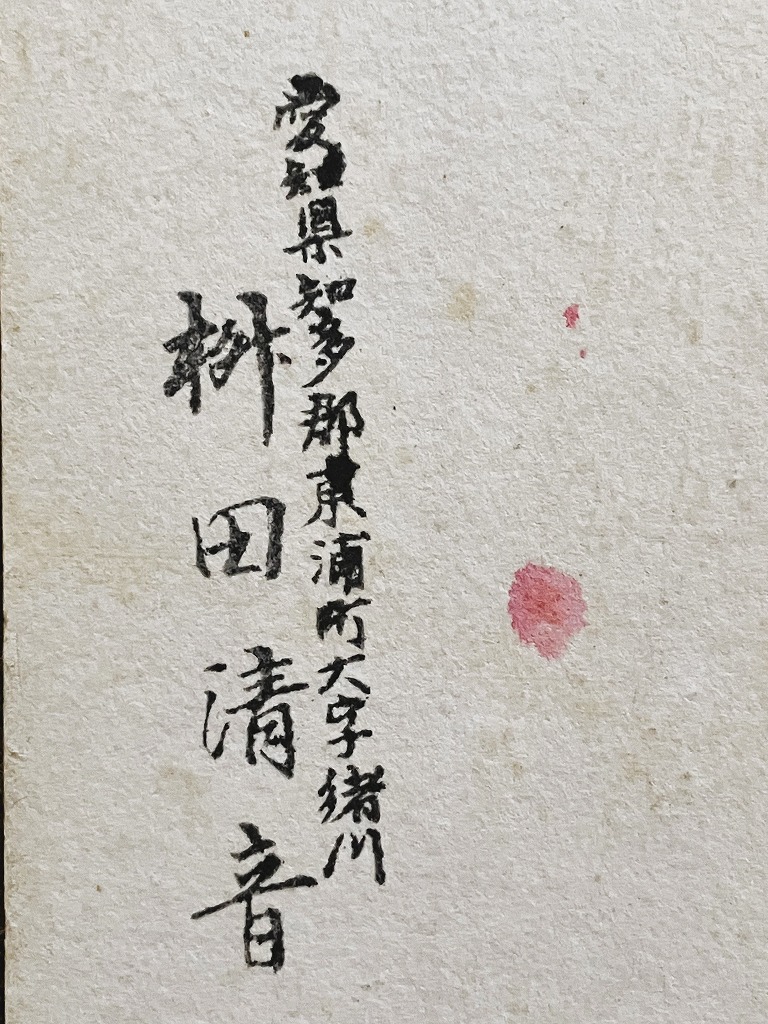 愛知県知多郡東浦町大字緒川
桝田清音